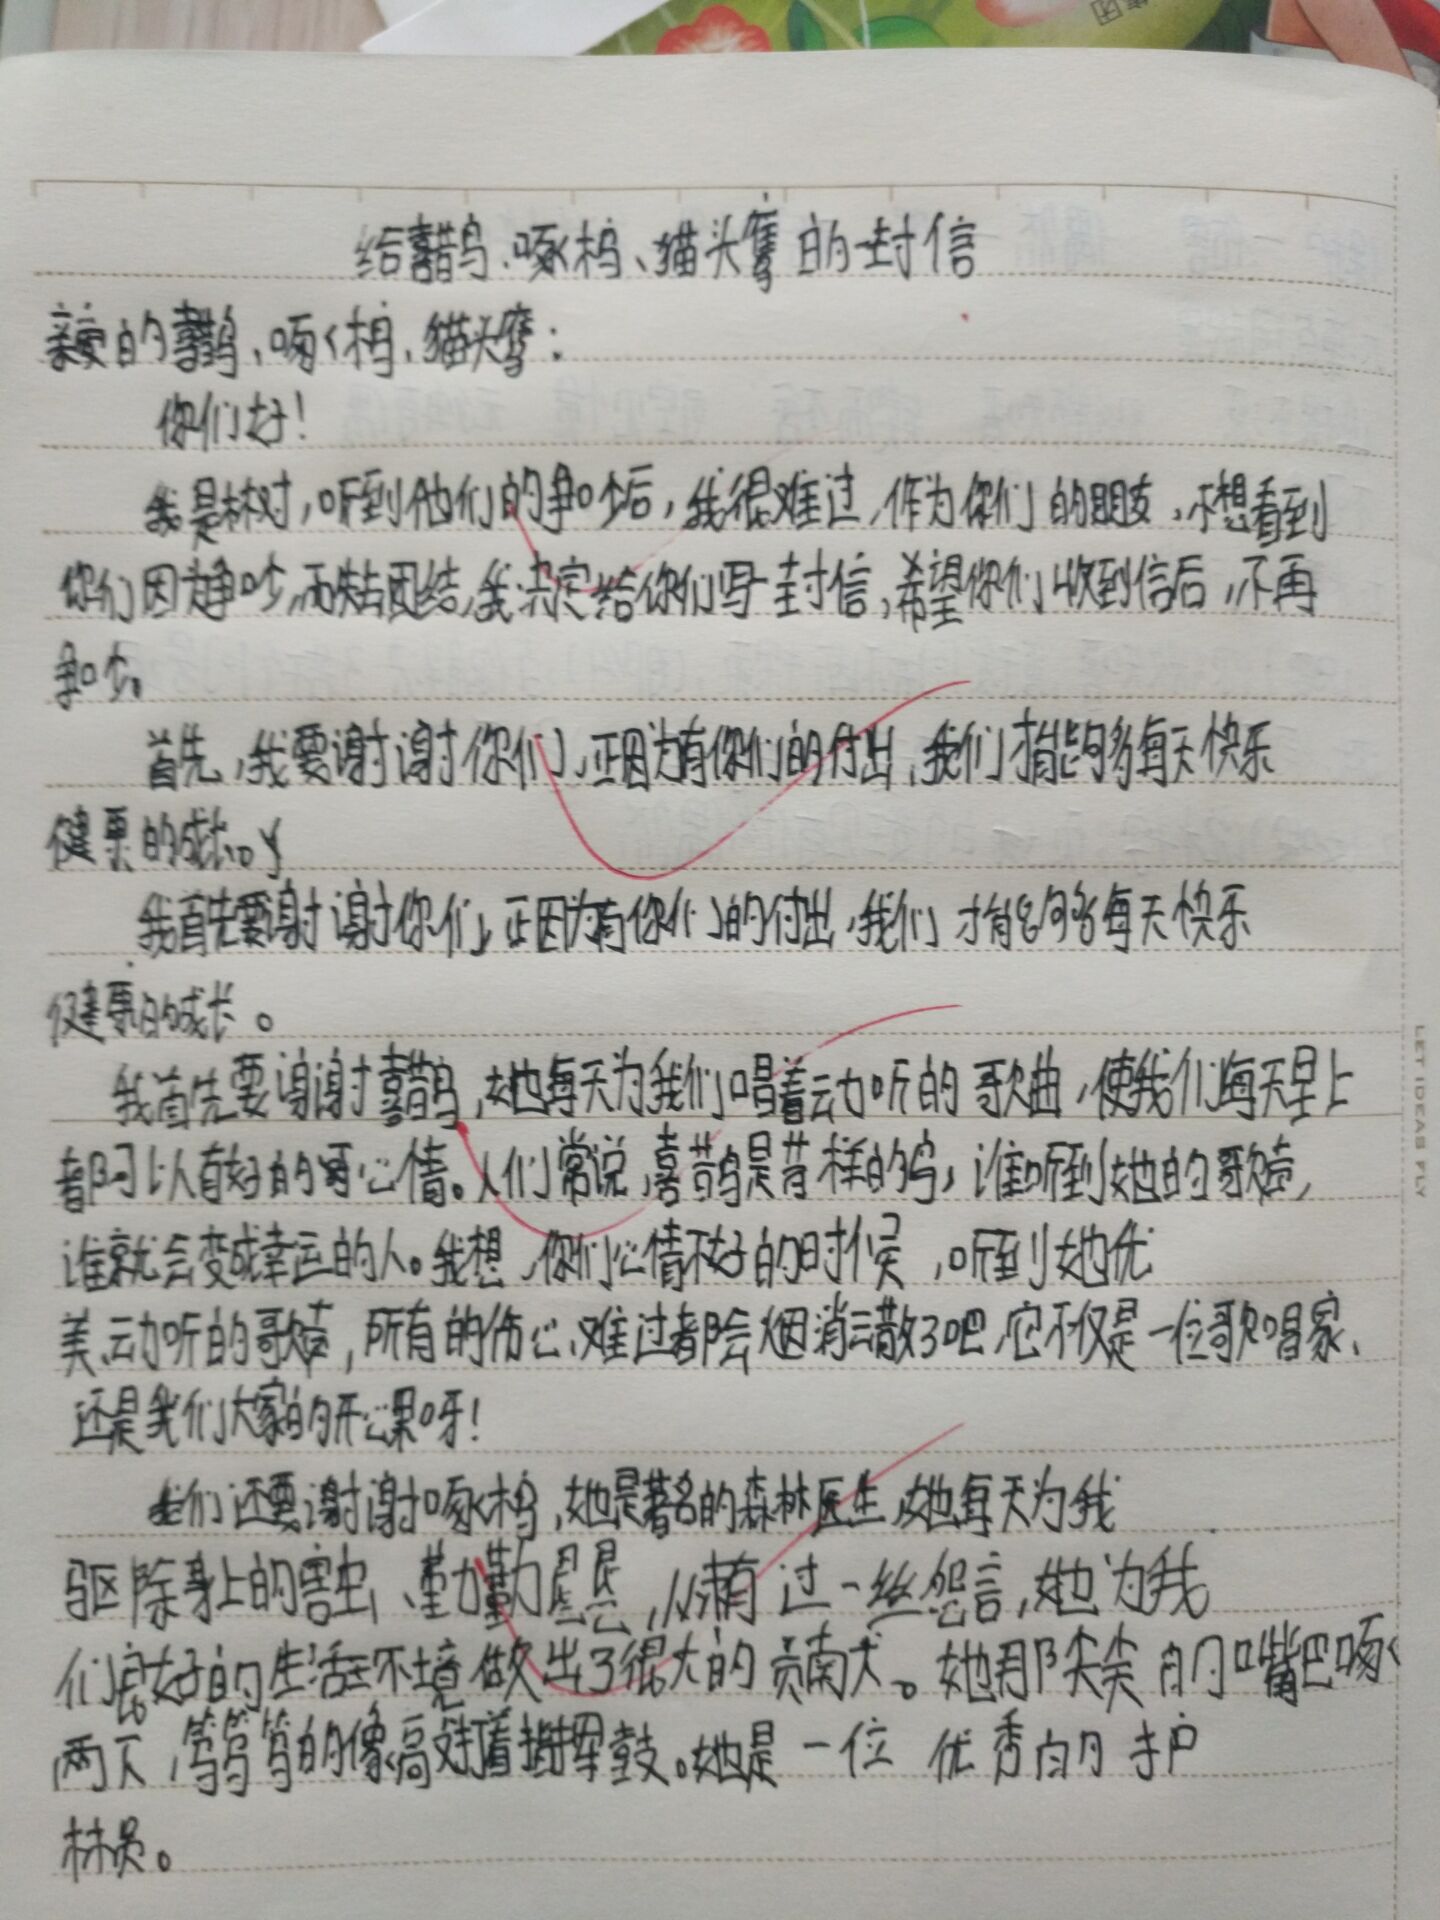 给喜鹊、啄木鸟、猫头鹰的一封信
亲爱的喜鹊、啄木鸟、猫头鹰：
你们好！
我是林树，听到他们的争吵后，我很难过，作为你们的朋友，不想看到
你们因为争吵，而失去团结，我决定给你们写一封信，希望你们收到信后，不再
争吵。
首先，我要谢谢你们，正因为有你们的付出，我们才能够每天快乐
健康的成长。
我首先要谢谢你们，正因为有你们的付出，我们才能够每天快乐
健康的成长。
我首先要谢谢喜鹊，她每天为我们唱着动听的歌曲，使我们每天早上
都可以有好的心情。人们常说，喜鹊是吉祥的鸟，谁听到她的歌声，
谁就会变成幸运的人。我想，你们心情不好的时候，听到她优
美、动听的歌声，所有的伤心、难过都会烟消云散了吧，它不仅是一位歌唱家、
还是我们大家的开心果呀！
我们还要谢谢啄木鸟，她是著名的森林医生，她每天为我
驱除身上的害虫、勤勤恳恳，从没有过一丝怨言，她为我
们良好的生活环境做出了很大的贡献。她那尖尖的嘴巴啄
两下，笃笃笃的像高敲着指挥鼓。她是一位优秀的护
林员。
集团
LET IDEAS FLY